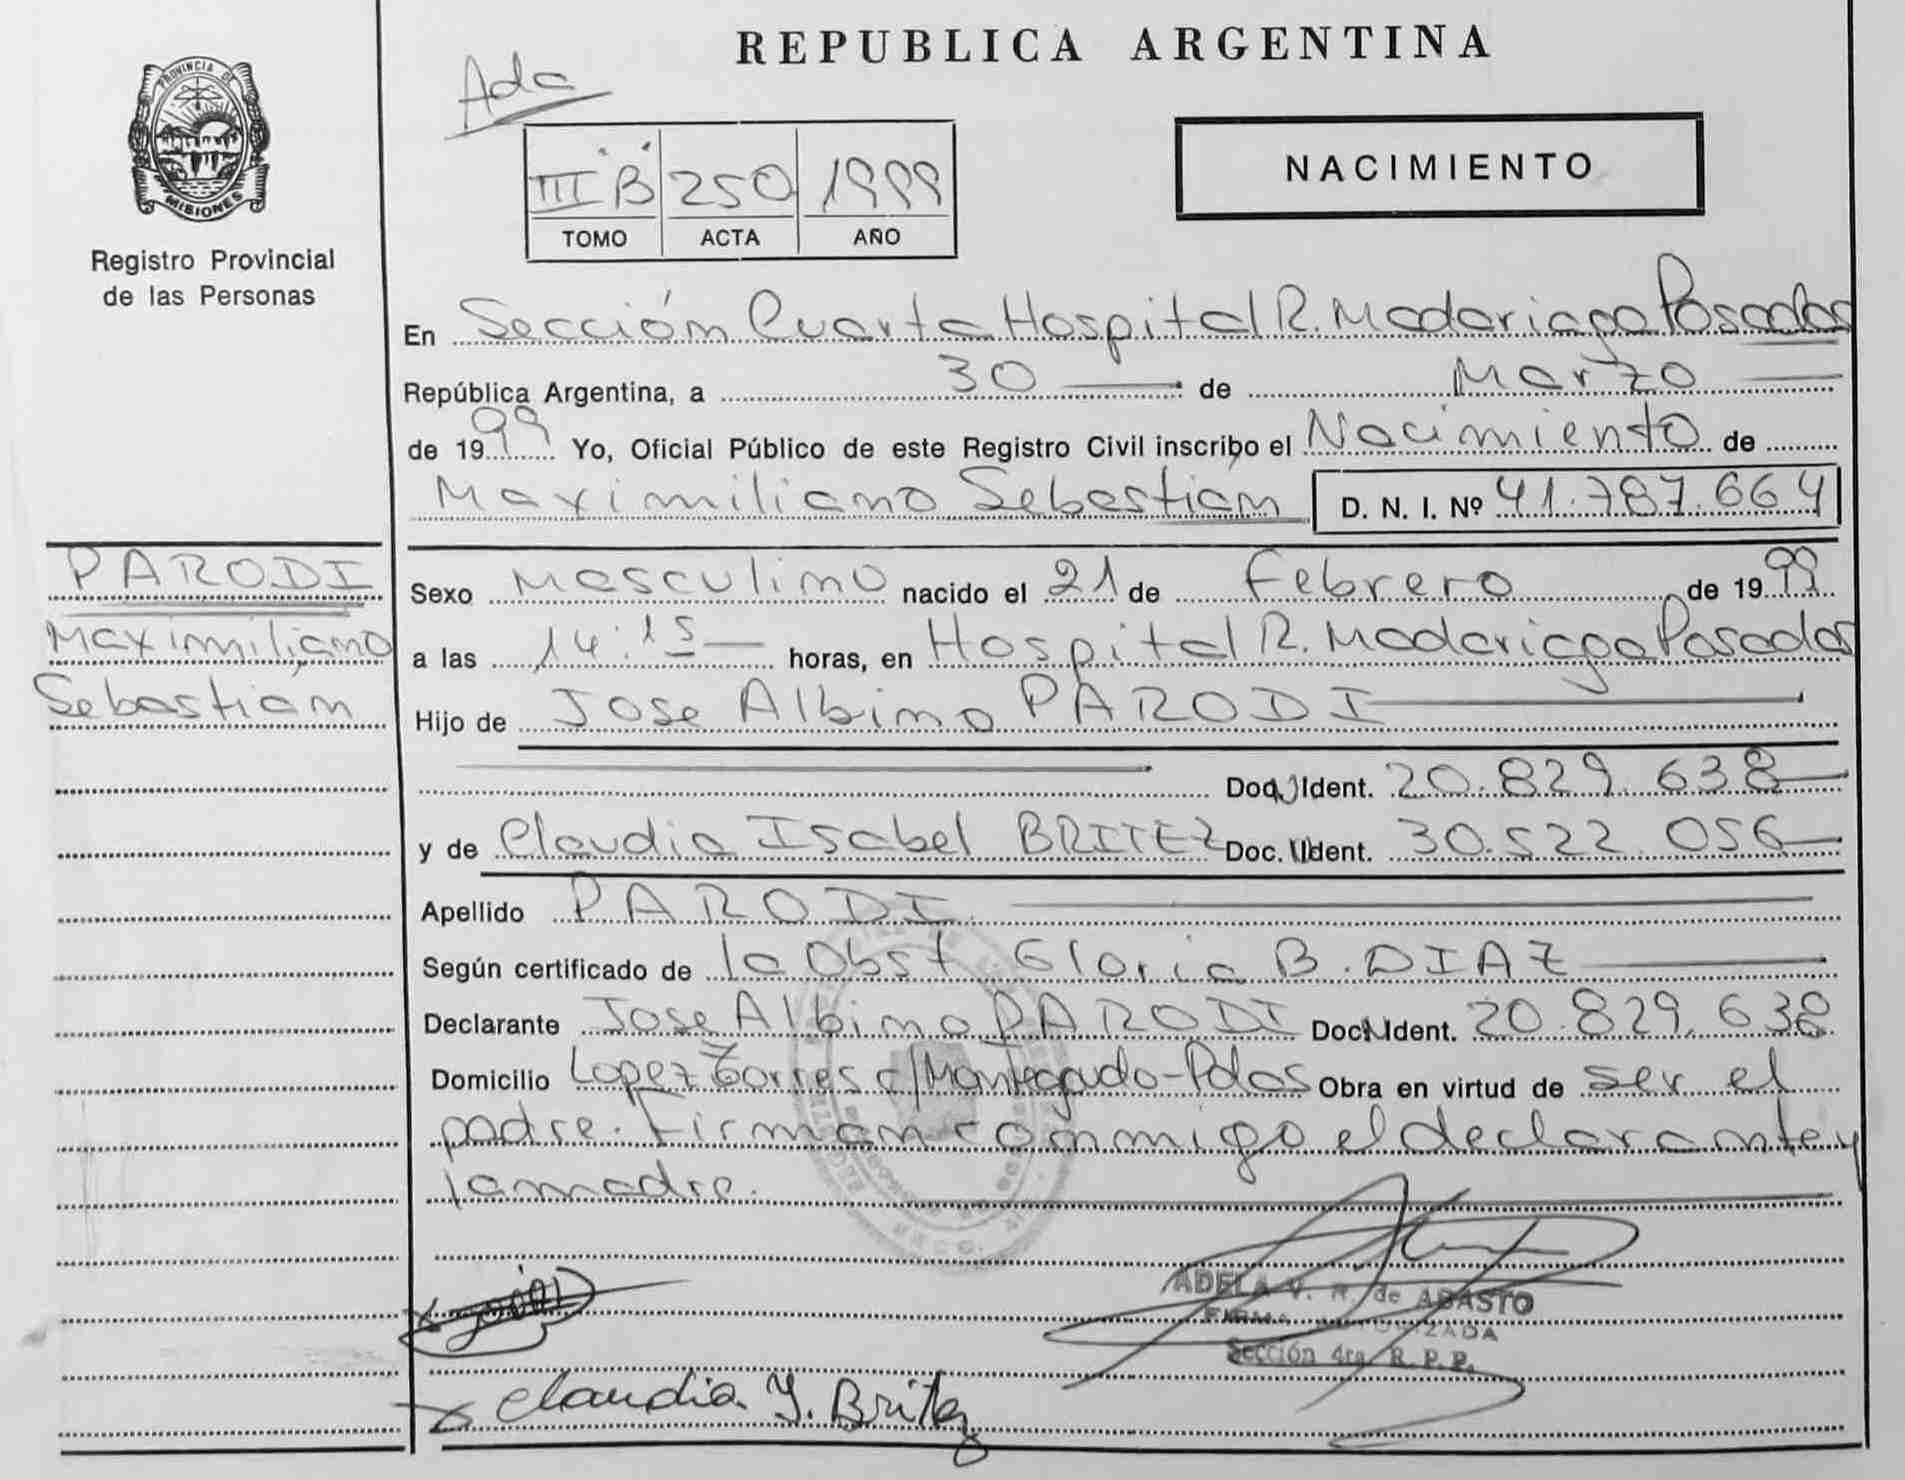 REPUBLICA ARGENTINA
PROVINCIA DE
MISIONES
Registro Provincial
de las Personas
Ada
III "B" 250 1999
TOMO ACTA AÑO
NACIMIENTO
En Sección Cuarta Hospital R. Madariaga Posadas
República Argentina, a 30 de Marzo
de 1999 Yo, Oficial Público de este Registro Civil inscribo el Nacimiento de
Maximiliano Sebastian D. N. I. Nº 41.787.664
PARODI
Maximiliano
Sebastian
Sexo Masculino nacido el 21 de Febrero de 1999
a las 14:15 horas, en Hospital R. Madariaga Posadas
Hijo de Jose Albino PARODI
Doc. Ident. 20.829.638
y de Claudia Isabel BRITEZ Doc. Ident. 30.522.056
Apellido PARODI
Según certificado de la Obst Gloria B. DIAZ
Declarante Jose Albino PARODI Doc. Ident. 20.829.638
Domicilio Lopez Torres c/ Mantegado-Pdas Obra en virtud de ser el
padre. Firman conmigo el declarante y
la madre.
ADELA V. R. de ABASTO
FIRMA AUTORIZADA
Sección 4ta R. P. P.
Claudia Y. Britez